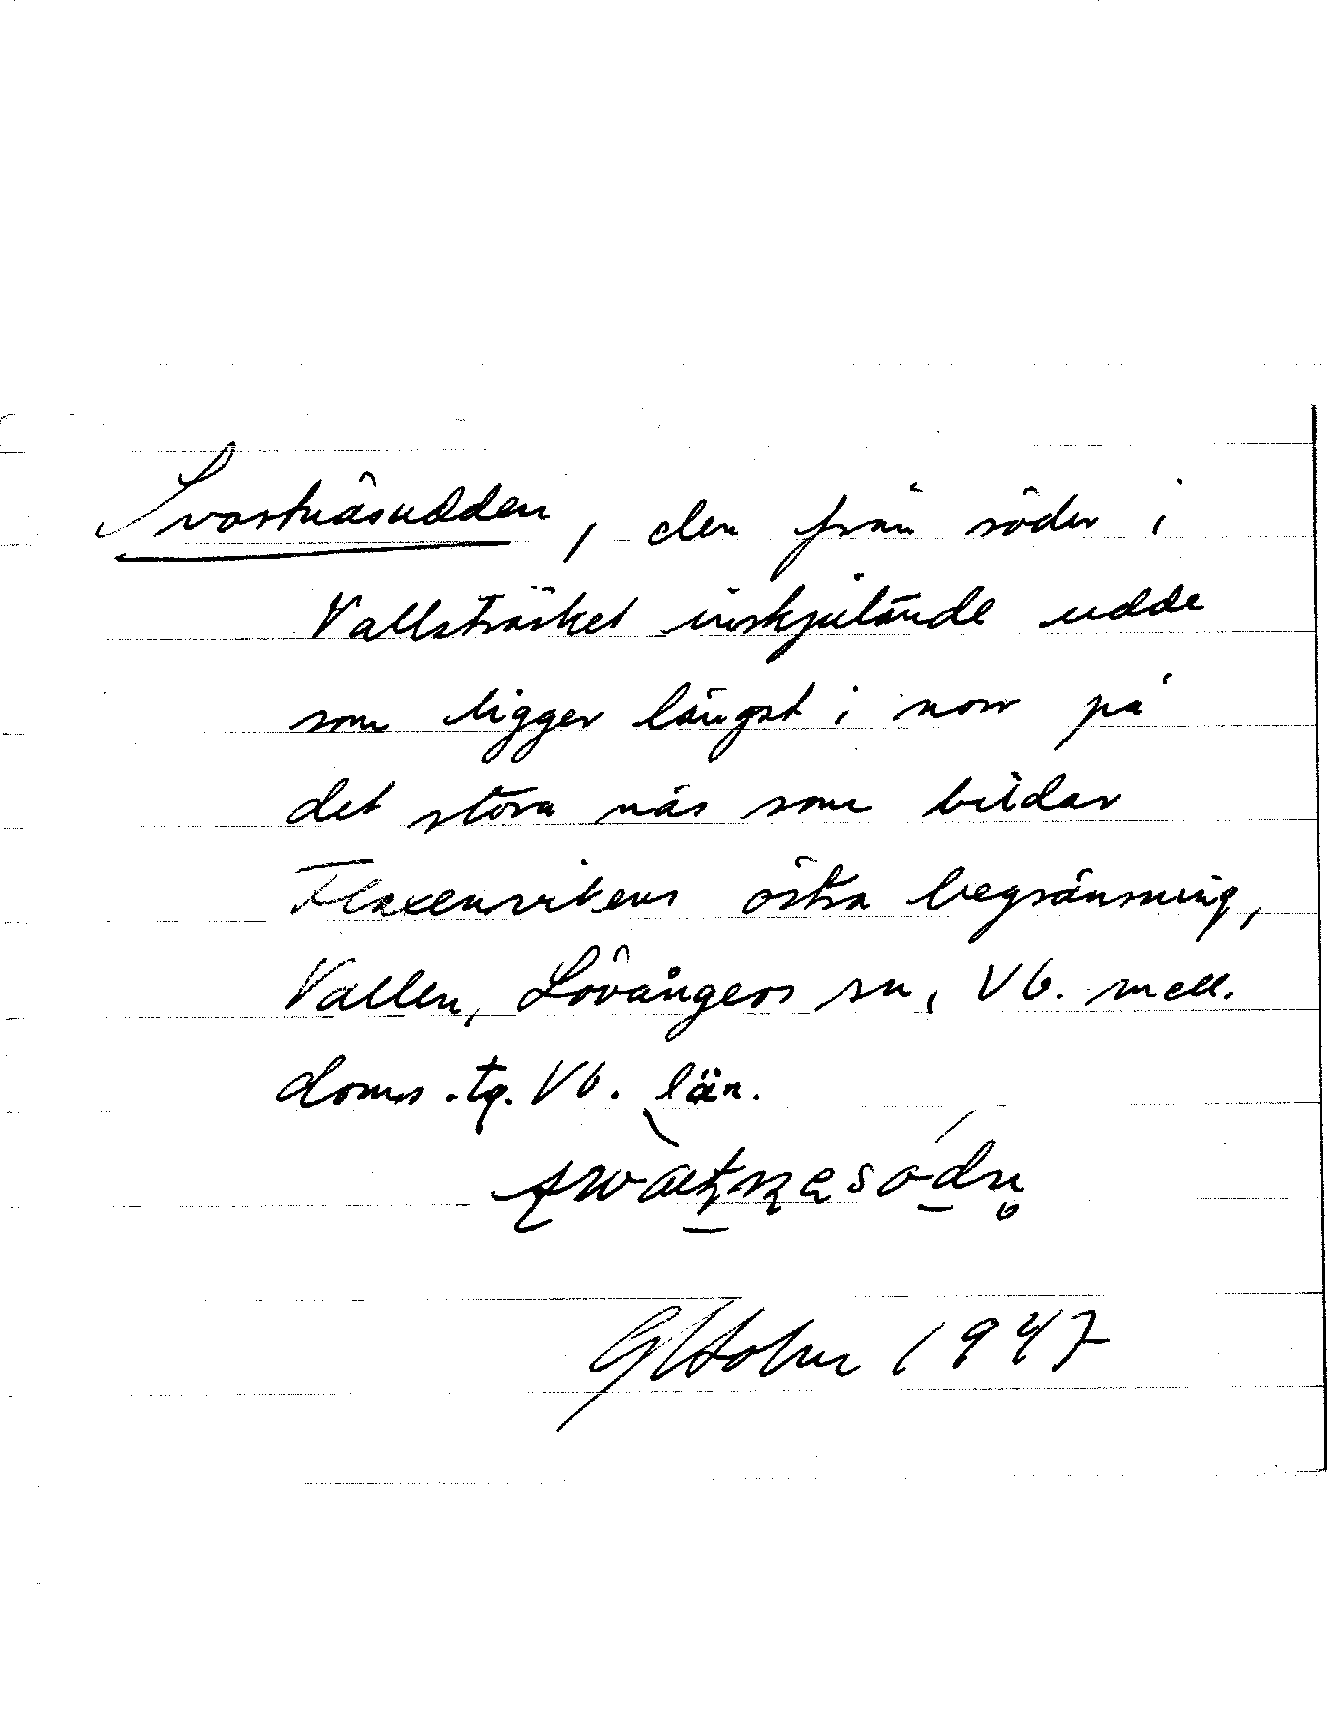 Svartnäsudden, den från söder i
Vallsträsket inskjutande udde
som ligger längst i norr på
det stora näs som bildar
Flaxenvikens östra begränsning,
Vallen, Lövångers sn, Vb. mell.
doms. tg. Vb. län.
1947